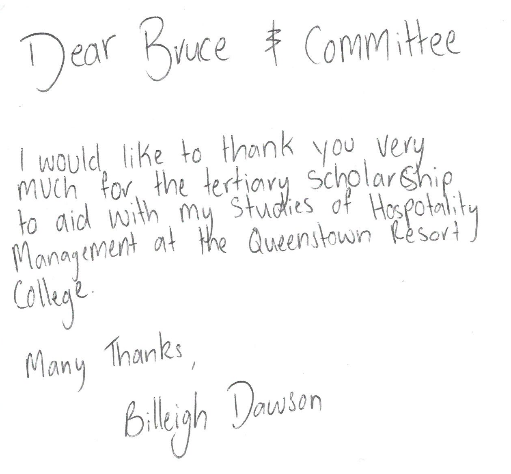 Dear Bruce & Committee
I would like to thank you very
much for the tertiary scholarship
to aid with my studies of Hospotality
Management at the Queenstown Resort
College.
Many Thanks,
Billeigh Dawson